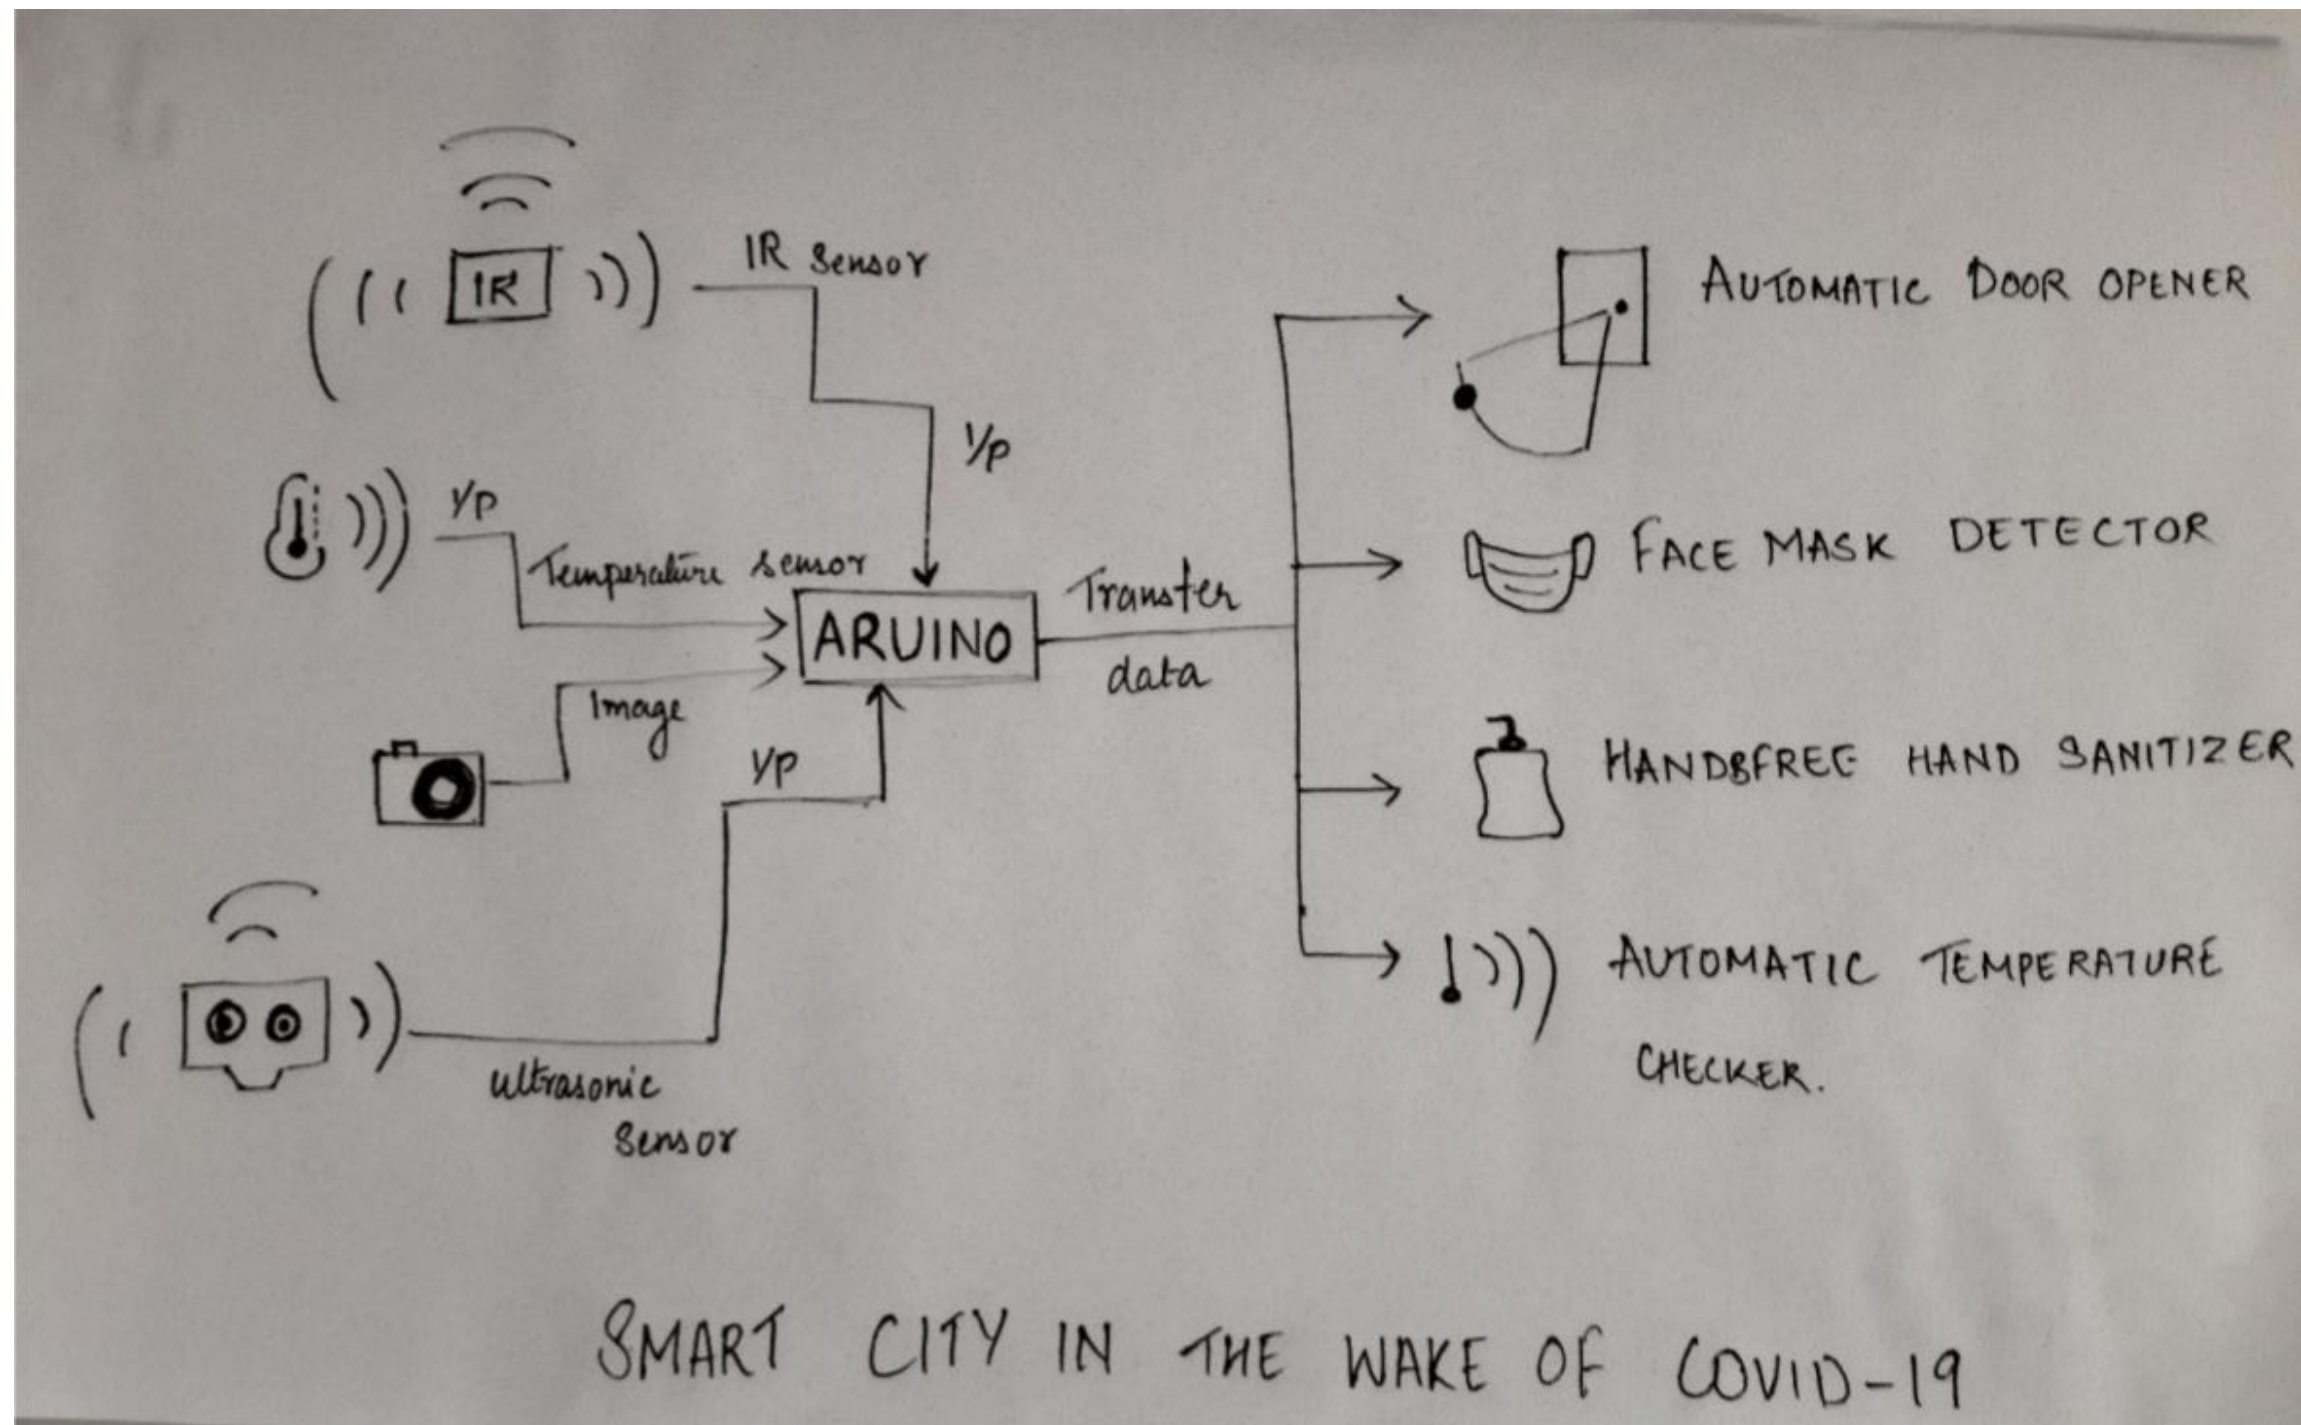 IR
IR Sensor
I/P
I/P
Temperature sensor
ARUINO
Image
I/P
ultrasonic
Sensor
Transfer
data
AUTOMATIC DOOR OPENER
FACE MASK DETECTOR
HANDSFREE HAND SANITIZER
AUTOMATIC TEMPERATURE
CHECKER.
SMART CITY IN THE WAKE OF COVID-19